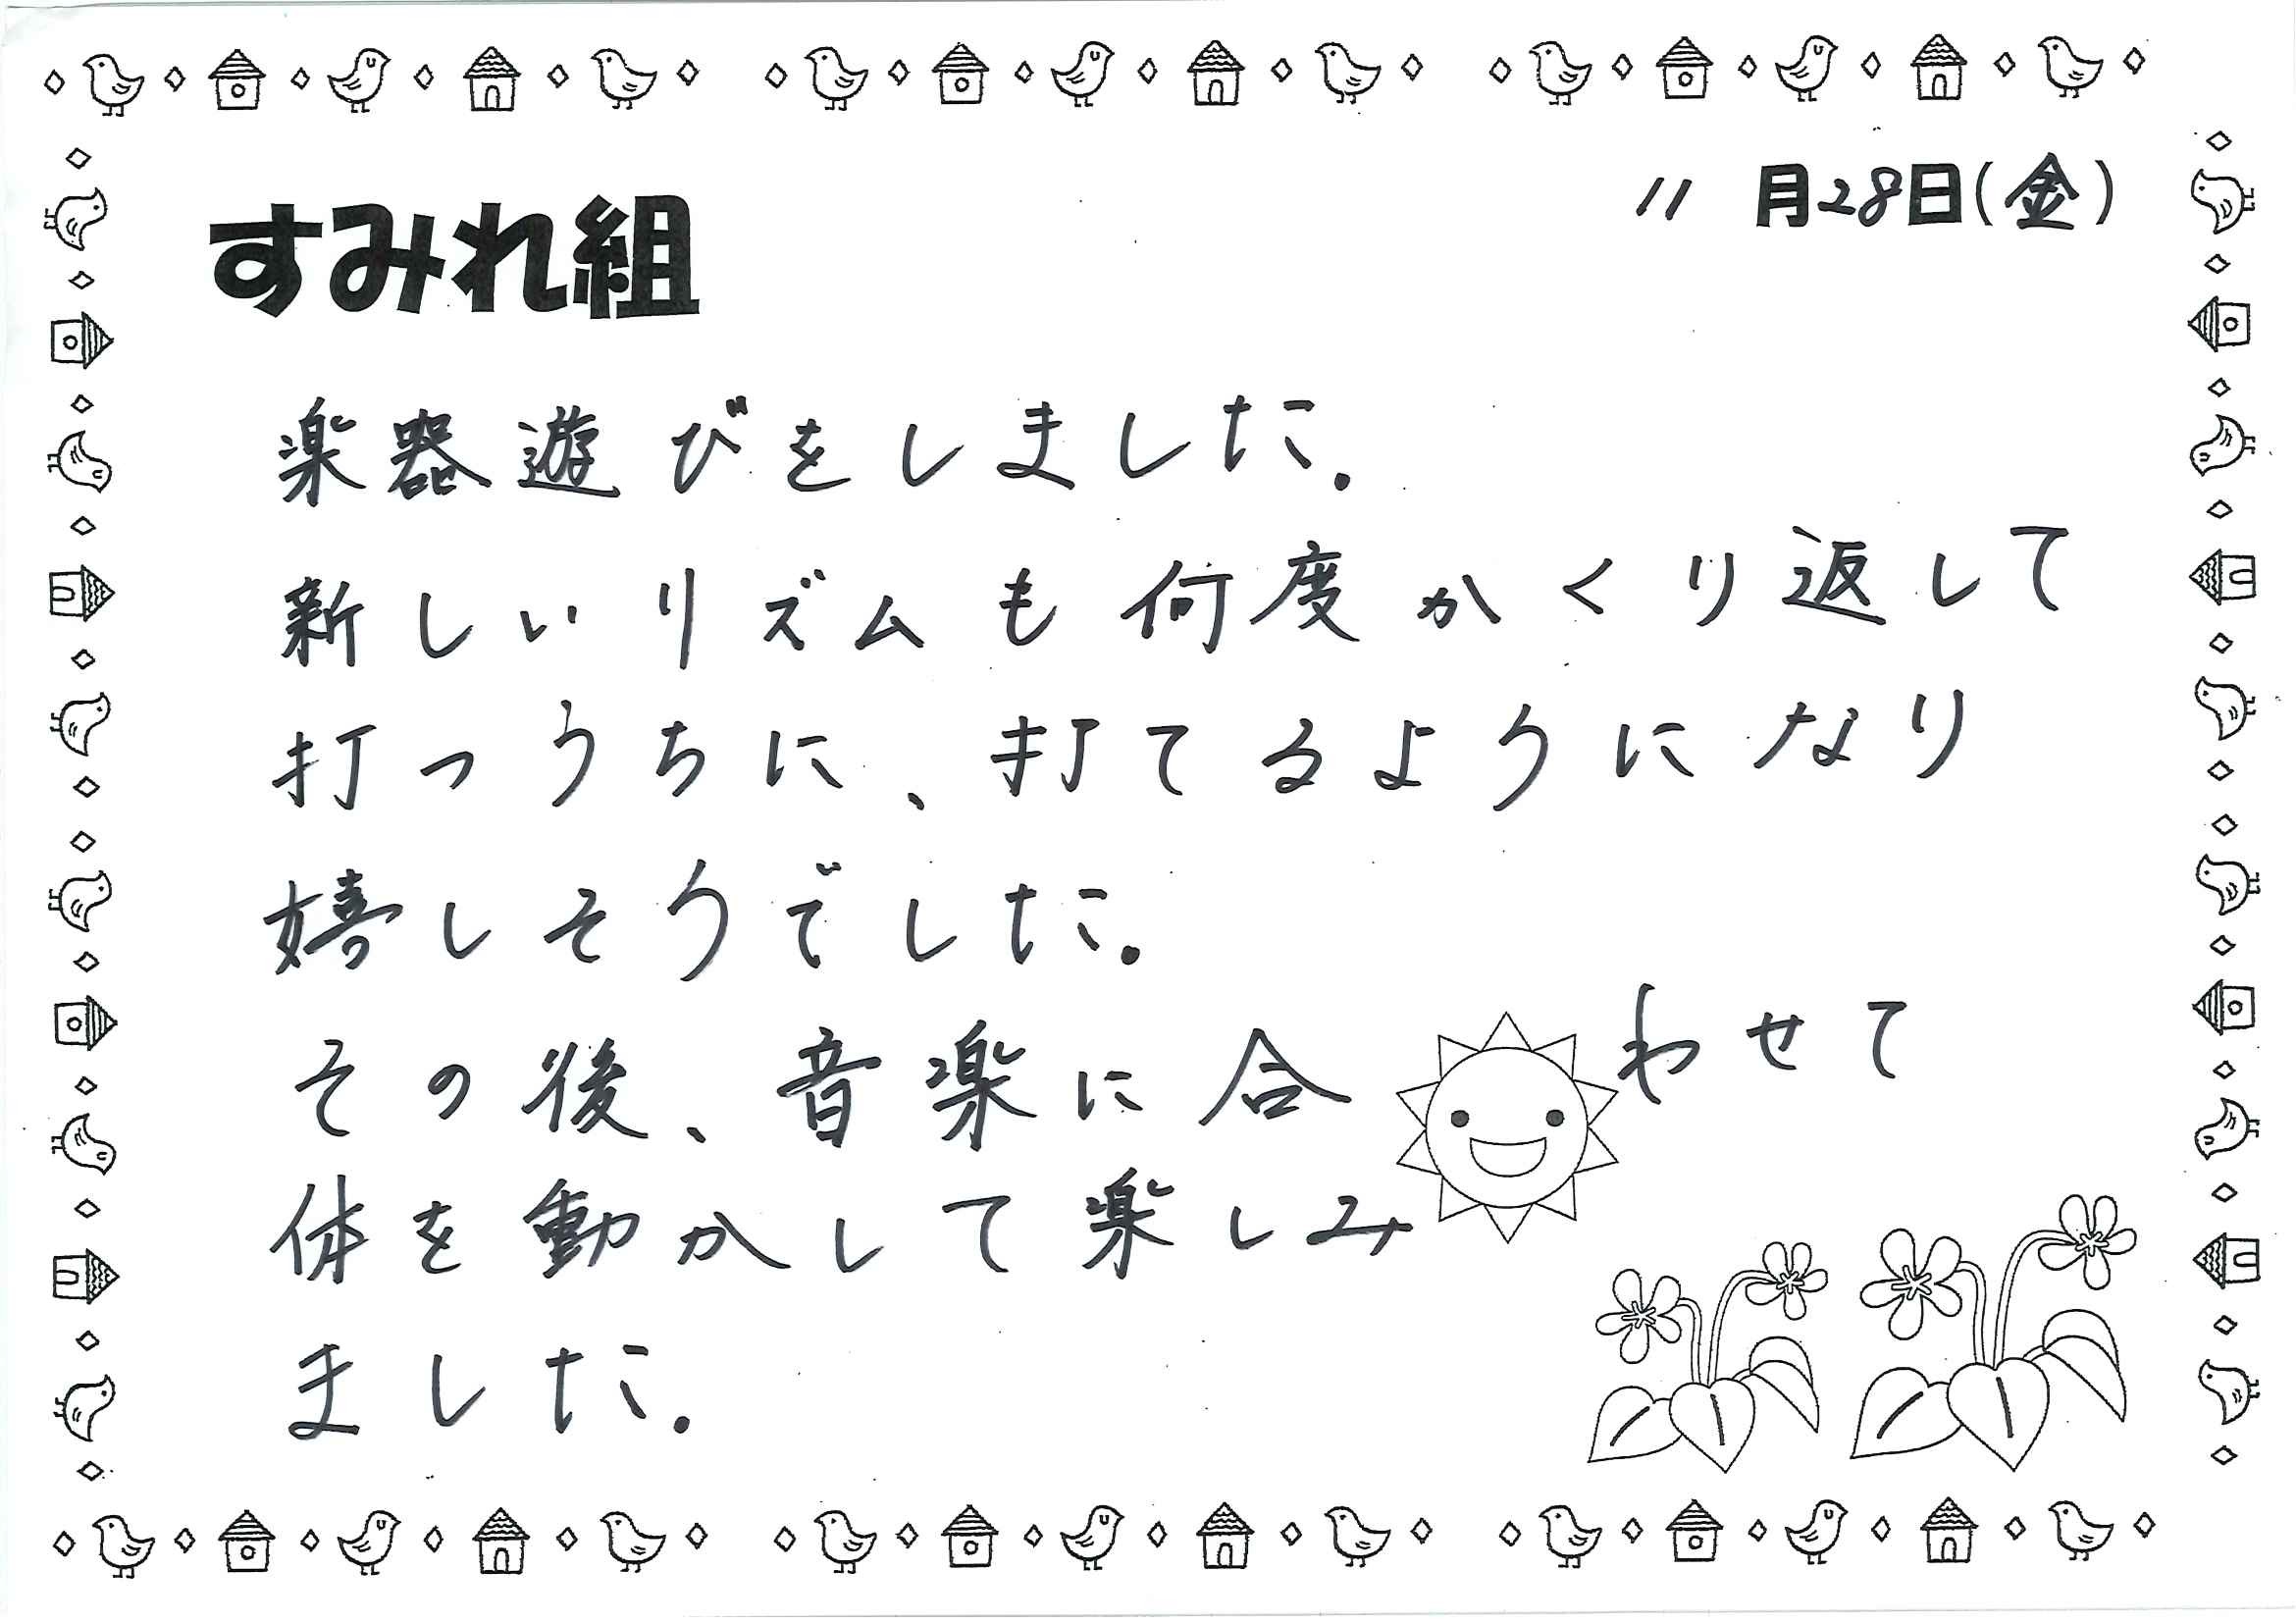 11月28日(金)
すみれ組
楽器遊びをしました。
新しいリズムも何度かくり返して
打つうちに、打てるようになり
嬉しそうでした。
その後、音楽に合わせて
体を動かして楽しみ
ました。